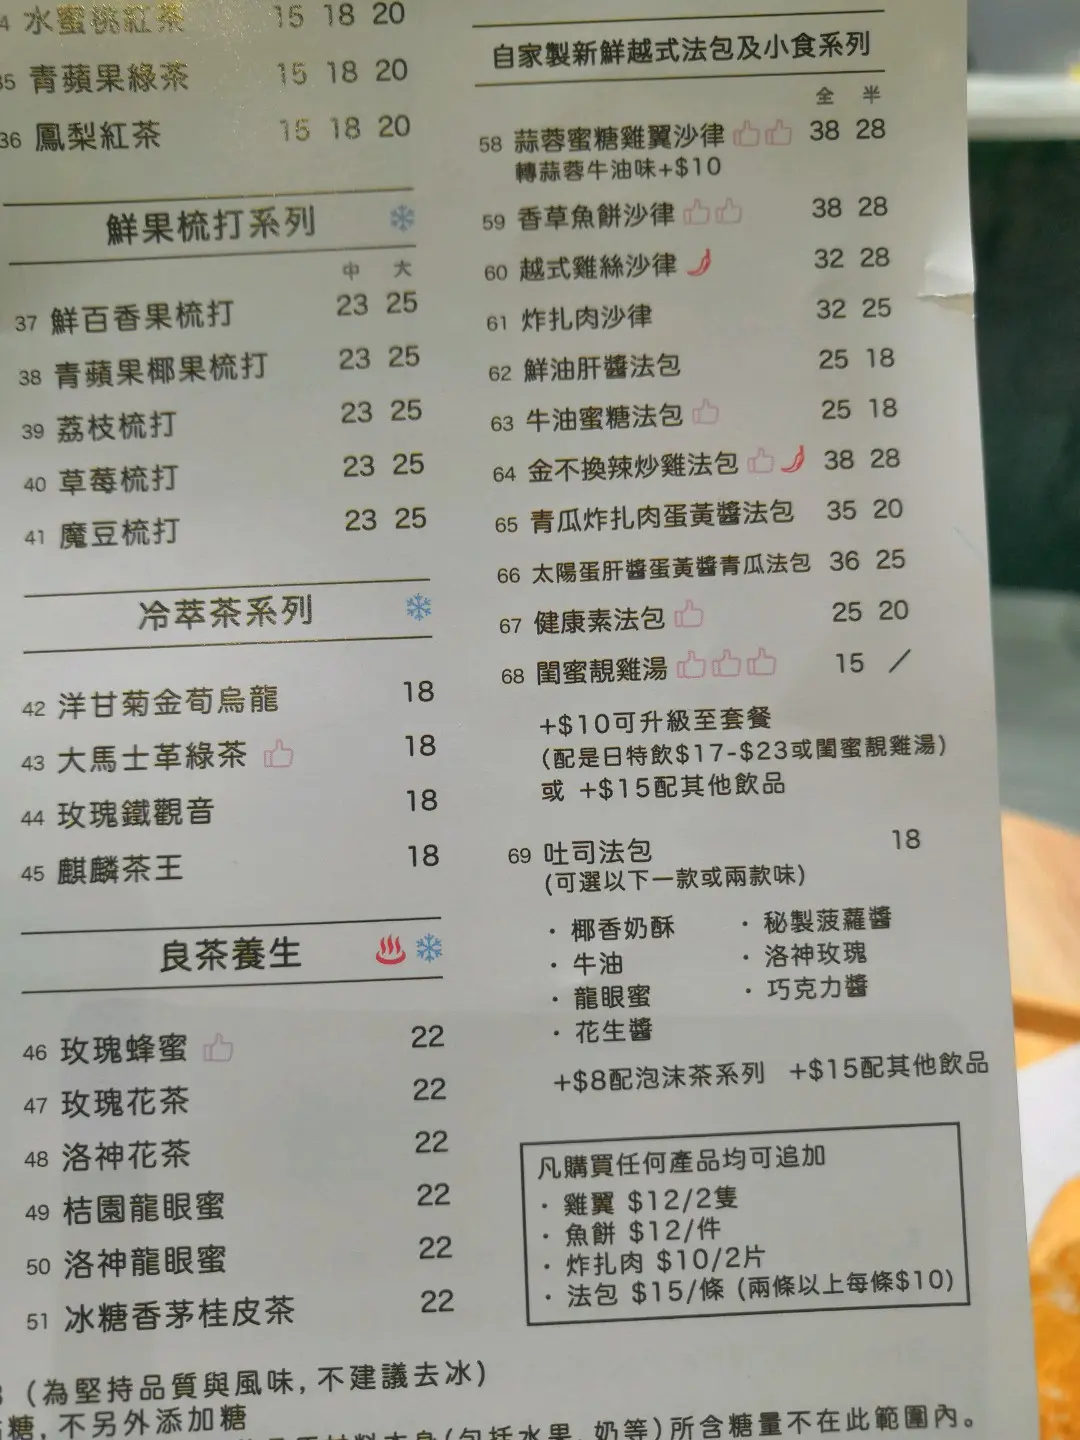 4 水蜜桃紅茶 15 18 20
35 青蘋果綠茶 15 18 20
36 鳳梨紅茶 15 18 20
鮮果梳打系列
中 大
37 鮮百香果梳打 23 25
38 青蘋果椰果梳打 23 25
39 荔枝梳打 23 25
40 草莓梳打 23 25
41 魔豆梳打 23 25
冷萃茶系列
42 洋甘菊金萄烏龍 18
43 大馬士革綠茶 18
44 玫瑰鐵觀音 18
45 麒麟茶王 18
良茶養生
46 玫瑰蜂蜜 22
47 玫瑰花茶 22
48 洛神花茶 22
49 桔園龍眼蜜 22
50 洛神龍眼蜜 22
51 冰糖香茅桂皮茶 22
自家製新鮮越式法包及小食系列
全 半
58 蒜蓉蜜糖雞翼沙律 38 28
轉蒜蓉牛油味+$10
59 香草魚餅沙律 38 28
60 越式雞絲沙律 32 28
61 炸扎肉沙律 32 25
62 鮮油肝醬法包 25 18
63 牛油蜜糖法包 25 18
64 金不換辣炒雞法包 38 28
65 青瓜炸扎肉蛋黃醬法包 35 20
66 太陽蛋肝醬蛋黃醬青瓜法包 36 25
67 健康素法包 25 20
68 閨蜜靚雞湯 15 ／
+$10可升級至套餐
(配是日特飲$17-$23或閨蜜靚雞湯)
或 +$15配其他飲品
69 吐司法包 18
(可選以下一款或兩款味)
· 椰香奶酥 · 秘製菠蘿醬
· 牛油 · 洛神玫瑰
· 龍眼蜜 · 巧克力醬
· 花生醬
+$8配泡沫茶系列 +$15配其他飲品
凡購買任何產品均可追加
· 雞翼 $12/2隻
· 魚餅 $12/件
· 炸扎肉 $10/2片
· 法包 $15/條 (兩條以上每條$10)
(為堅持品質與風味,不建議去冰)
糖,不另外添加糖
本身(包括水果,奶等)所含糖量不在此範圍內。